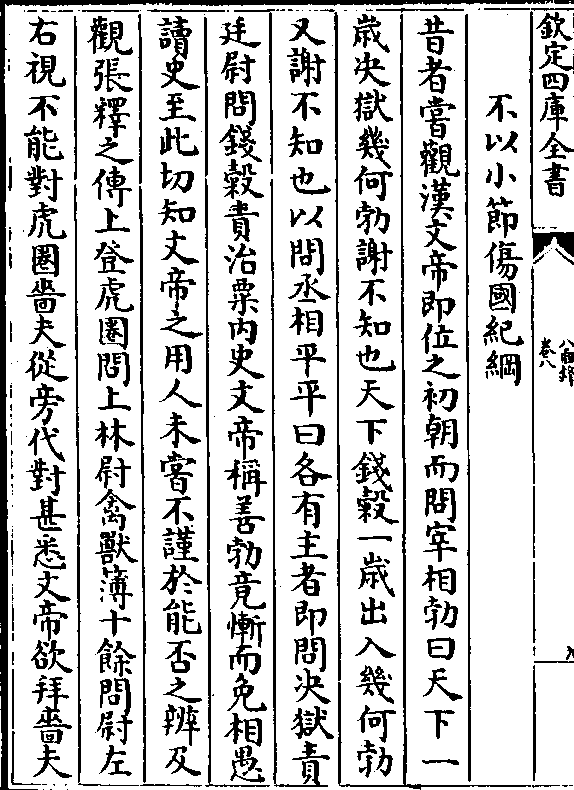 欽定四庫全書
卷八
不以小節傷國紀綱
昔者嘗觀漢文帝即位之初朝而問宰相勃曰天下一
歲决獄幾何勃謝不知也天下錢穀一歲出入幾何勃
又謝不知也以問丞相平平曰各有主者即問决獄責
廷尉問錢穀責治粟内史文帝稱善勃竟慚而免相愚
讀史至此切知文帝之用人未嘗不謹於能否之辨及
觀張釋之傳上登虎圏問上林尉禽獸簿十餘問尉左
右視不能對虎圏嗇夫從旁代對甚悉文帝欲拜嗇夫